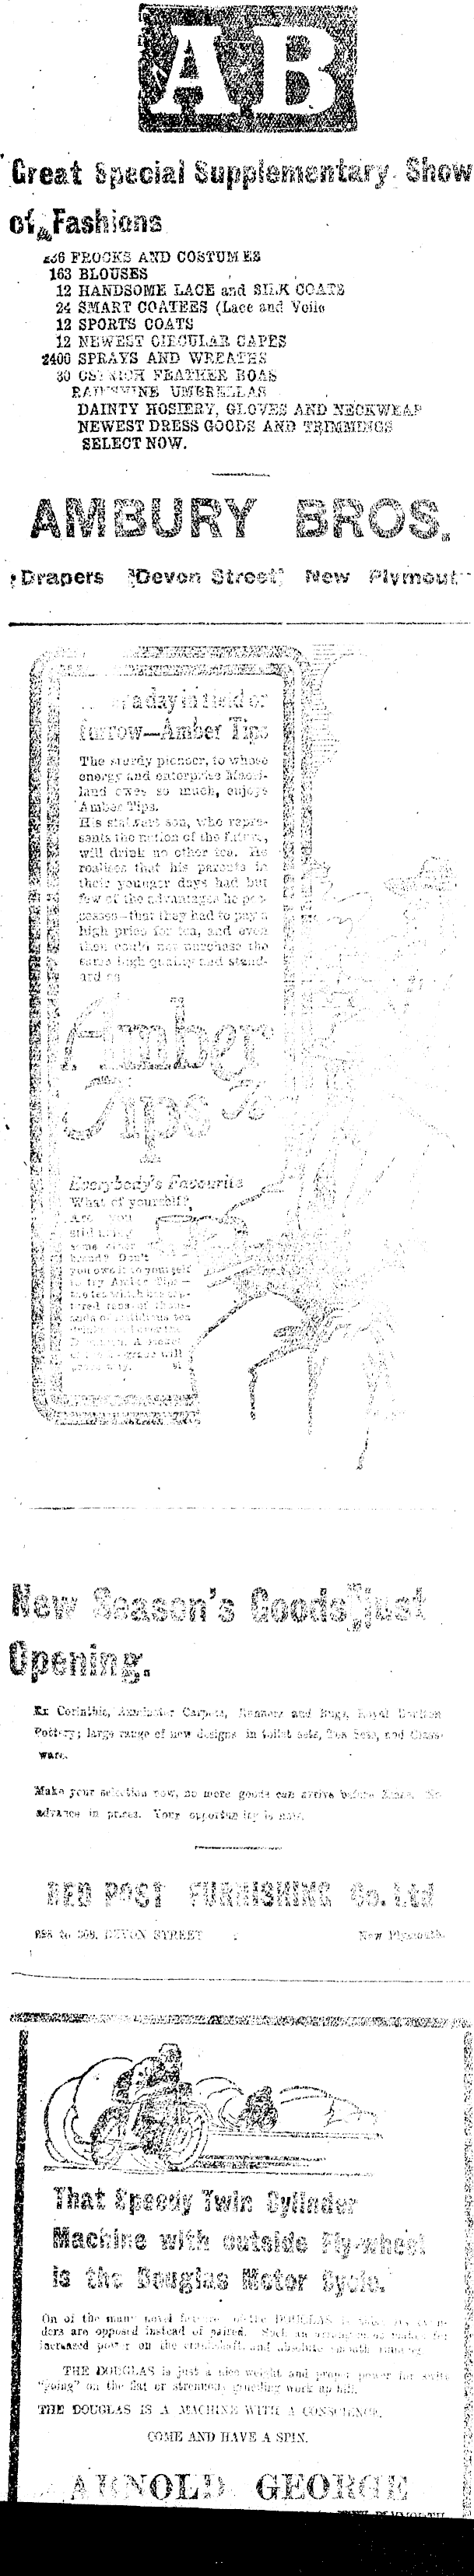 AB
Great Special Supplementary Show
of Fashions
FROCKS AND COSTUMES
163 BLOUSES
12 HANDSOME LACE and SILK COATS
24 SMART COATEES (Lace and Voile
12 SPORTS COATS
12 NEWEST CIRCULAR CAPES
2400 SPRAYS AND WREATHS
30 OSTRICH FEATHER BOAS
UMBRELLAS
DAINTY HOSIERY, GLOVES AND NECKWEAR
NEWEST DRESS GOODS AND TRIMMINGS
SELECT NOW.
AMBURY BROS.
Drapers Devon Street New Plymout
a day in field or
furrow—Amber Tips
The sturdy pioneer, to whose
energy and enterprise Maori-
land owes so much, enjoys
Amber Tips.
His stalwart son, who repre-
sents the nation of the future,
will drink no other tea. He
realises that his parents in
their younger days had but
few of the advantages he pos-
sesses—that they had to pay a
high price for tea, and even
then could not purchase the
same high quality and stand-
ard as
Amber
Tips
Everybody's Favourite
What of yourself?
Are you
still using
some other
Don't
you owe it to yourself
to try Amber Tips—
the tea which has
of thous-
ands of
tea
A
grade will
New Season's Goods just
Opening.
Ex Corinthic, Axminster Carpets, Runners and Rugs, Royal Doulton
Pottery; large range of new designs in toilet sets, Tea Sets, and Glass-
ware.
Make your selection now, no more goods can arrive before Xmas. No
advance in prices. Your opportunity is now.
RED POST FURNISHING Co. Ltd
DEVON STREET New Plymouth.
That Speedy Twin Cylinder
Machine with outside Fly-wheel
is the Douglas Motor Cycle.
On of the many novel of the DOUGLAS is
ders are opposed instead of paired. Such an makes for
increased power on the crankshaft and absolute smooth running.
THE DOUGLAS is just a nice weight and proper power for
"going" on the flat or strenuous gruelling work up hill.
THE DOUGLAS IS A MACHINE WITH A CONSCIENCE.
COME AND HAVE A SPIN.
ARNOLD GEORGE
NEW PLYMOUTH